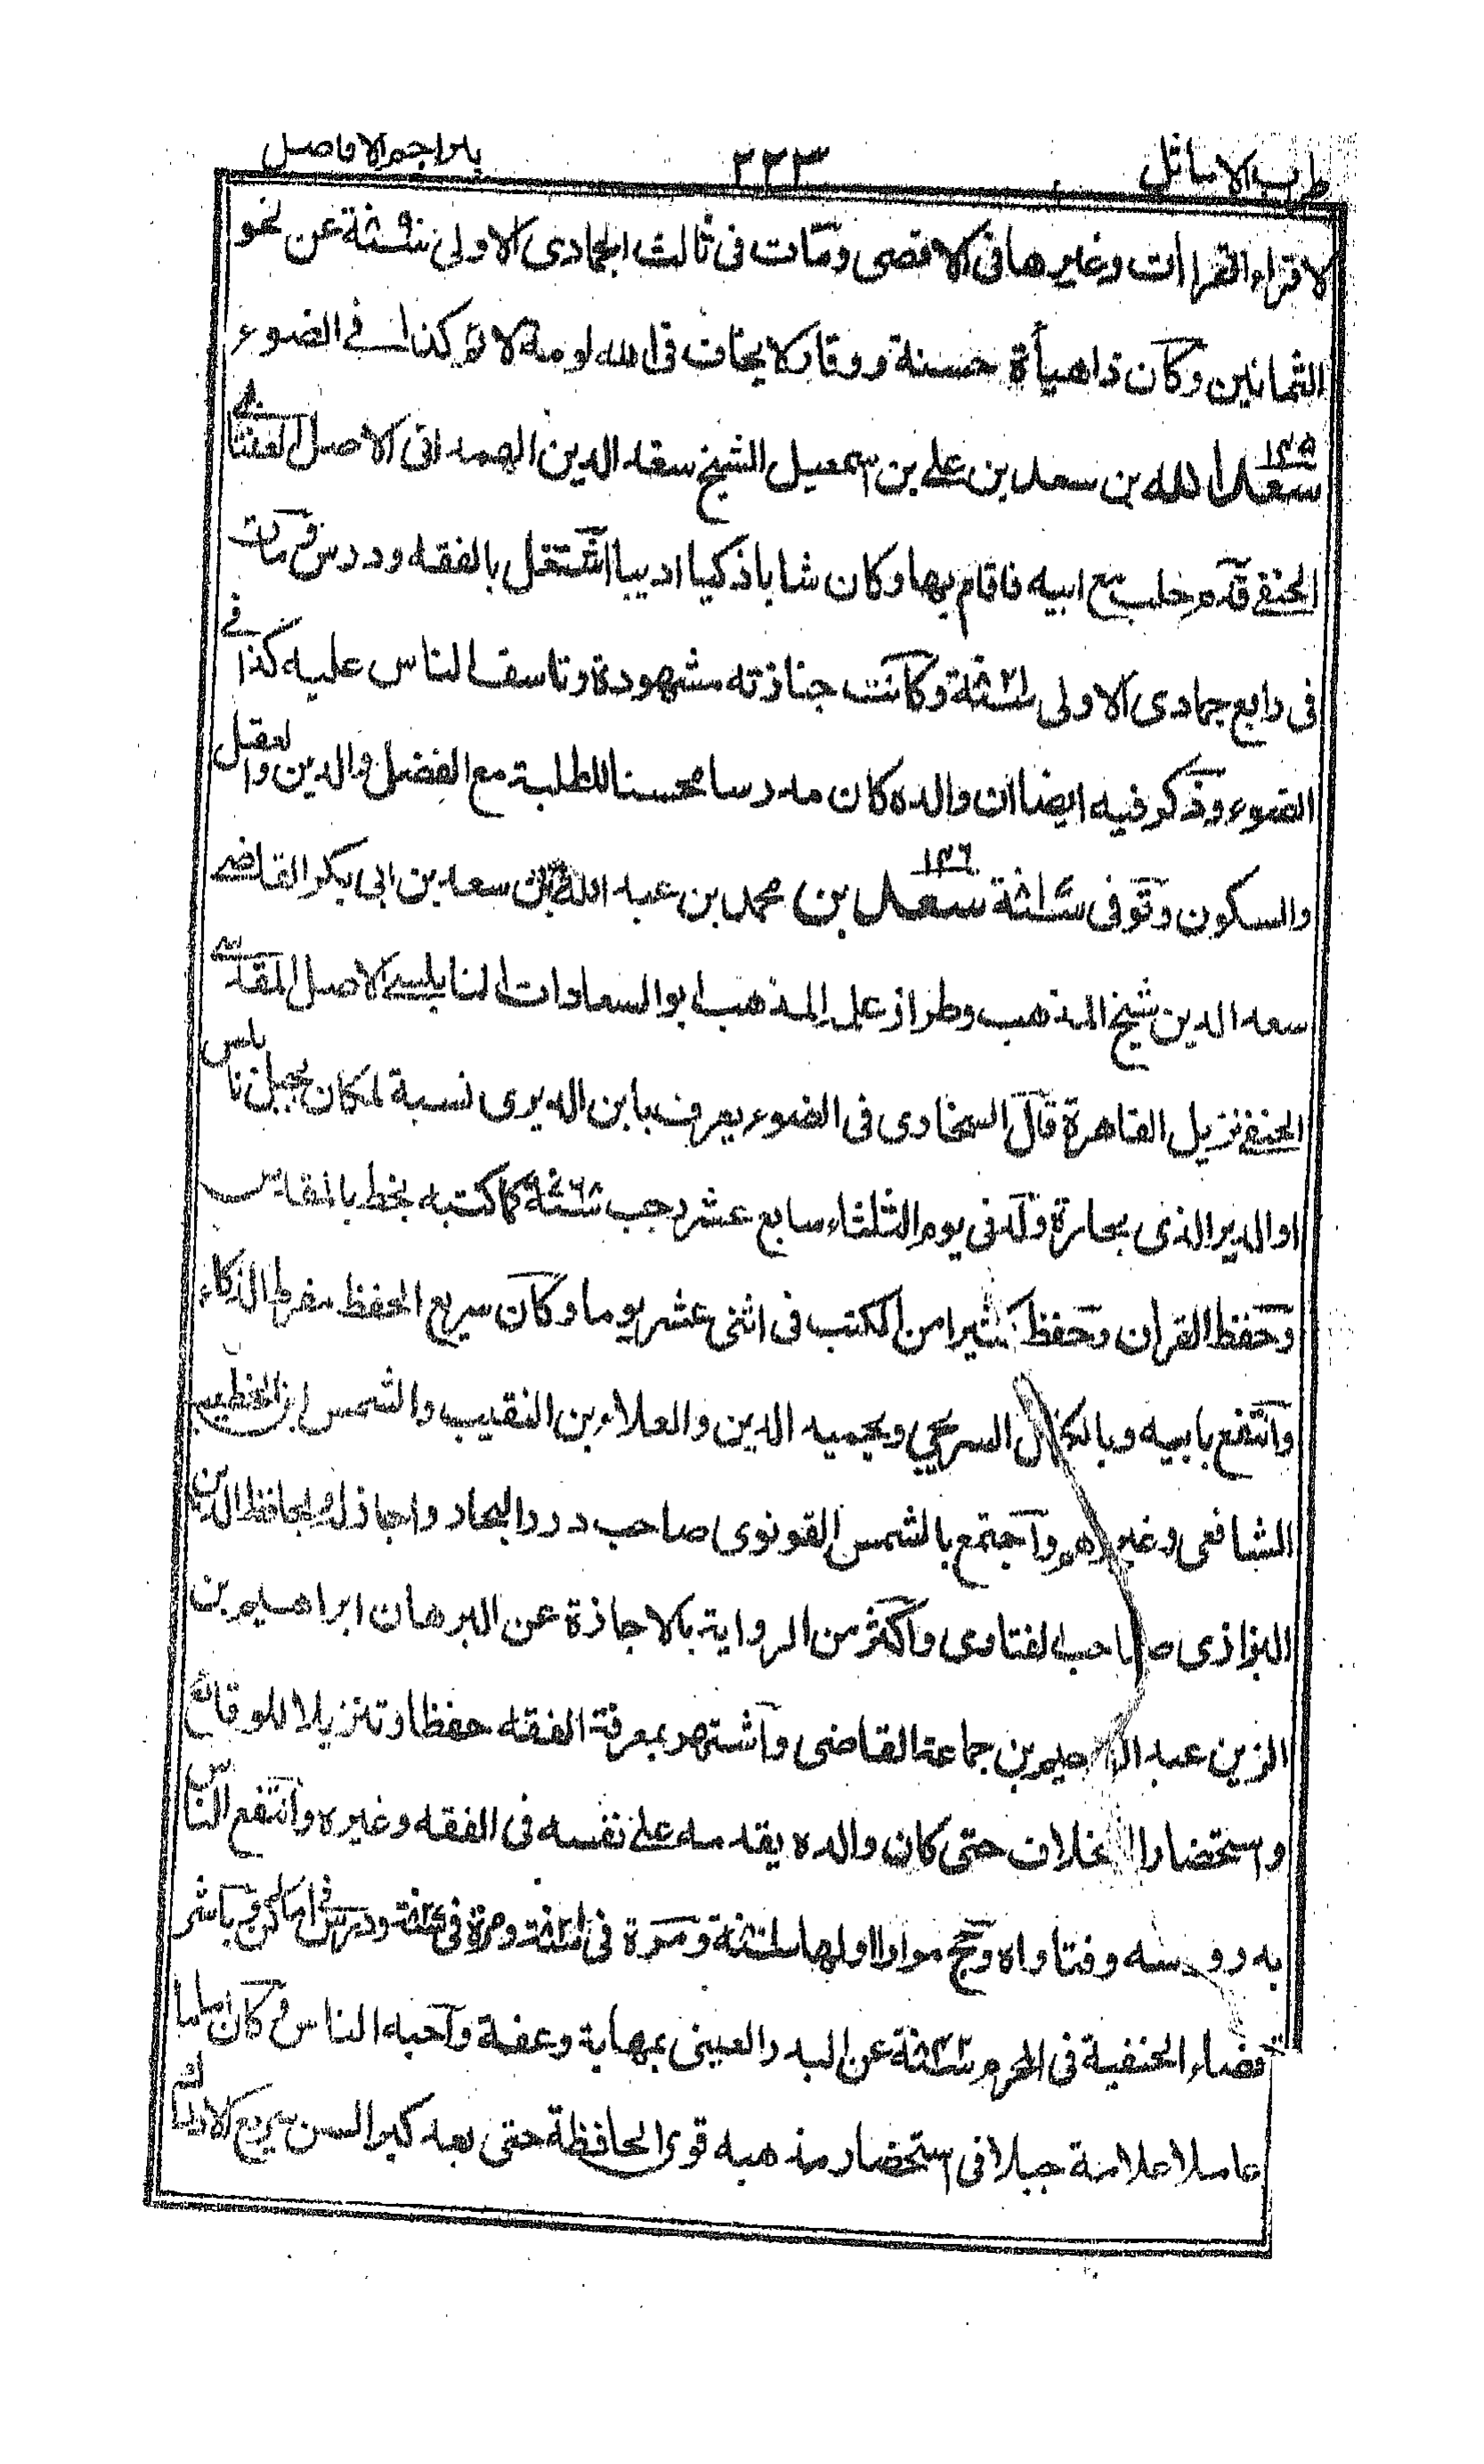 طرب الاماثل ٢٢٣ بتراجم الافاضل
لاقراء القراات وغيرها فى الاقصى ومات فى ثالث الجمادى الاولى سنة عن نحو
الثمانين وكان ذاهيأة حسنة ووقار لا يخاف فى الله لومة لائم كذا فى الضوء
١٢٥ سعد الله بن سعد بن على بن اسمعيل الشيخ سعد الدين الهمدانى الاصل العنتابى
الحنفى قدم حلب مع ابيه فاقام بها وكان شابا ذكيا اديبا اشتغل بالفقه ودرس ومات
فى رابع جمادى الاولى سنة وكانت جنازته مشهودة وتاسف الناس عليه كذا فى
الضوء وذكر فيه ايضا ان والده كان مدرسا محسنا للطلبة مع الفضل والدين والعقل
والسكون وتوفى سنة ١٢٦ سعد بن محمد بن عبد الله بن سعد بن ابى بكر القاضى
سعد الدين شيخ المذهب وطراز علم المذهب ابو السعادات النابلسى الاصل المقدسى
الحنفى نزيل القاهرة قال السخاوى فى الضوء يعرف بابن الديرى نسبة لمكان بجبل نابلس
او الدير الذى بحارة ولد فى يوم الثلثاء سابع عشر رجب سنة ٧٦٨ كما كتبه بخطه بالمقدس
وحفظ القران وحفظ كثيرا من الكتب فى اثنى عشر يوما وكان سريع الحفظ مفرط الذكاء
وانتفع بابيه وبالكمال السريحى وبحميد الدين والعلاء بن النقيب والشمس ابن الخطيب
الشافعى وغيرهم واجتمع بالشمس القونوى صاحب درر البحار واجاز له حافظ الدين
البزازى صاحب الفتاوى واكثر من الرواية بالاجازة عن البرهان ابراهيم بن
الزين عبد الرحيم بن جماعة القاضى واشتهر بمعرفة الفقه حفظا وتنزيلا للوقائع
واستحضارا للخلاف حتى كان والده يقدمه على نفسه فى الفقه وغيره وانتفع الناس
به دروسه وفتاواه وحج مرارا اولها سنة ومرة فى سنة ومرة فى سنة ودرس فى اماكن وباشر
قضاء الحنفية فى المحرم سنة عن البدر العينى بمهابة وعفة واحبه الناس وكان اماما
عاملا علامة جبلا فى استحضار مذهبه قوى الحافظة حتى بعد كبر السن سريع الادراك